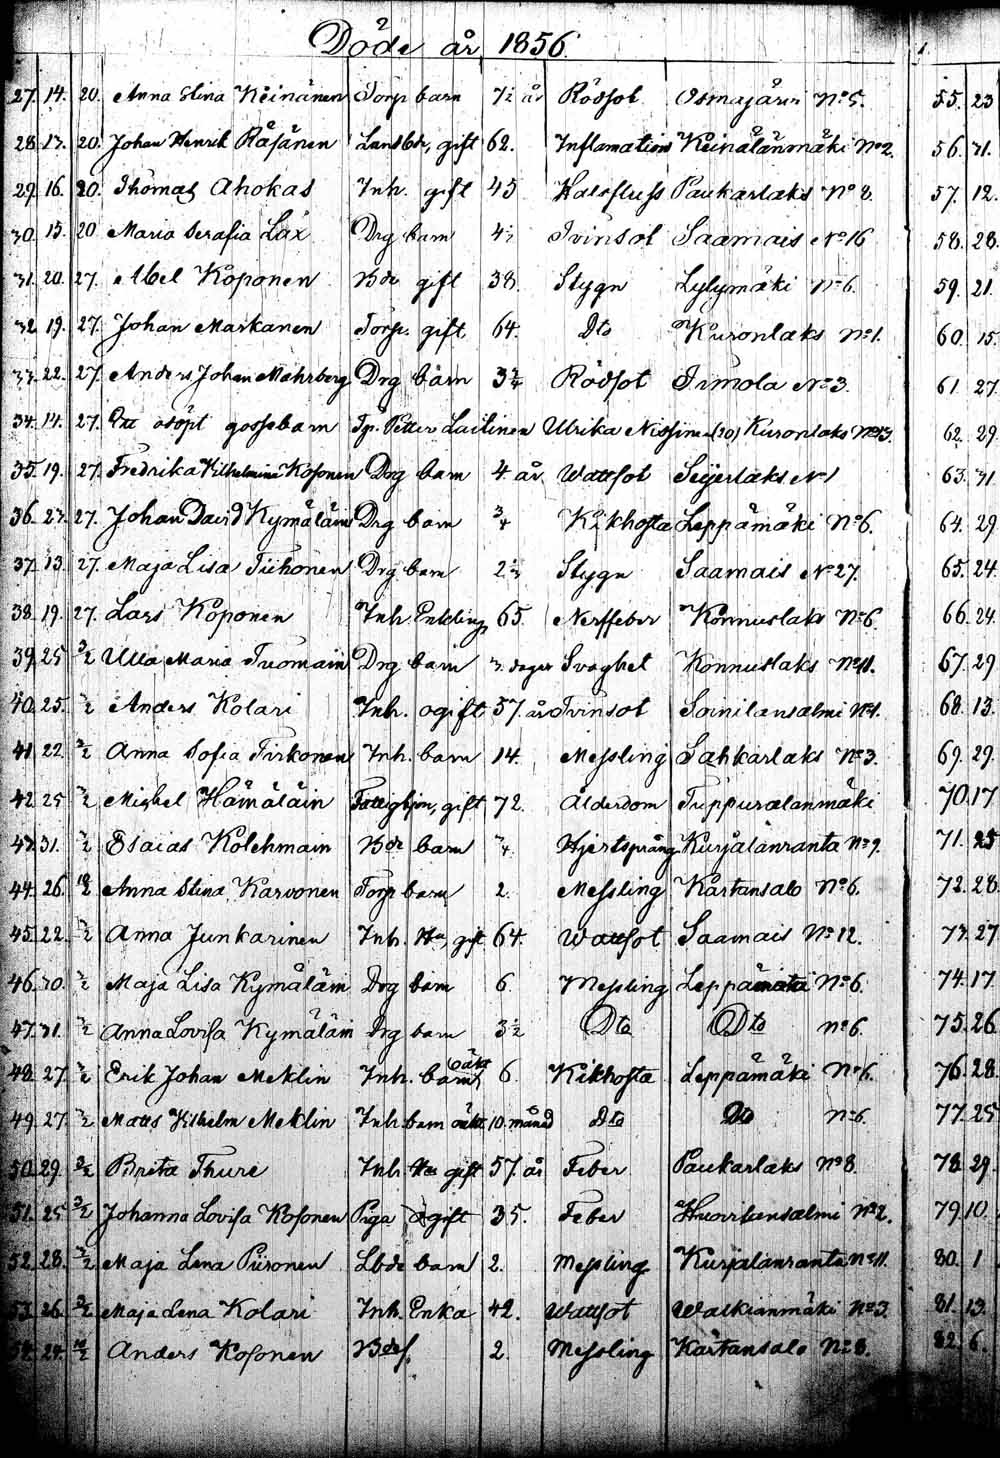 Döde år 1856.
27. 14. 20. Anna Stina Keinänen Torp barn 7½ år Rödsot Osmajärvi No 5. 55. 23
28. 17. 20. Johan Henrik Räsänen Landbde, gift 62. Inflamation Keinälänmäki No 2. 56. 31.
29. 16. 20. Thomas Ahokas Inh. gift 45 Halsfluss Paukarlaks No 8. 57. 12.
30. 15. 20 Maria Serafia Lax Drg barn Tvinsot Saamais No 16 58. 28.
31. 20. 27. Abel Koponen Bde gift 38. Stygn Lylymäki No 6. 59. 21.
32. 19. 27. Johan Markanen Torp. gift 64. Dto Kuronlaks No 1. 60. 15.
33. 22. 27. Anders Johan Mahrberg Drg barn Rödsot Timola No 3. 61. 27.
34. 14. 27. Ett odöpt gossebarn Tp. Petter Laitinen Ulrika Nissinen (20) Kuronlaks No 13. 62. 29.
35. 19. 27. Fredrika Vilhelmina Kosonen Drg barn 4 år Wattsot Seijerlaks No 1 63. 31
36. 23. 27. Johan David Kymäläin Drg barn ¾ Kikhosta Leppämäki No 6. 64. 29
37. 13. 27. Maja Lisa Tiihonen Drg barn Stygn Saamais No 27. 65. 24.
38. 19. 27. Lars Koponen Inh Enkling 65. Nerffeber Konnuslaks No 6. 66. 24.
39. 25 3/2 Ulla Maria Tuomain Drg barn 3. dagar Svaghet Konnuslaks No 11. 67. 29
40. 25. 3/2 Anders Kolari Inh. ogift 57. år Tvinsot Soinilansalmi No 1. 68. 13.
41. 22. 3/2 Anna Sofia Tirkonen Inh. barn 14. Messling Sahkarlaks No 3. 69. 29.
42. 25 3/2 Mickel Hämäläin Fattighjon, gift 72. Ålderdom Tuppuralanmäki 70. 17
43. 31. 3/2 Esaias Kolehmain Bde barn Hjertsprång Kurjälänranta No 9. 71. 25
44. 26. 10/2 Anna Stina Karvonen Torp barn 2. Messling Kärtansalo No 6. 72. 28.
45. 22. 3/2 Anna Junkarinen Inh. Hu, gift 64. Wattsot Saamais No 12. 73. 27
46. 30. 3/2 Maja Lisa Kymäläin Drg barn 6. Messling No 6. 74. 17
47. 31. 3/2 Anna Lovisa Kymäläin Drg barn 3½ Dto Dto No 6. 75. 26
48. 27. 3/2 Erik Johan Meklin Inh. barn oäkt 6. Kikhosta Leppämäki No 6. 76. 28.
49. 27. 3/2 Matts Vilhelm Meklin Inh. barn oäkt. 10. månad Dto Do No 6. 77. 25
50. 29. 3/2 Thure Inh. Hu gift 57. år Feber Paukarlaks No 8. 78. 29.
51. 25 3/2 Johanna Lovisa Kosonen Piga ogift 35. Feber No 2. 79. 10.
52. 28. 3/2 Maja Lena Piironen Lbde barn 2. Messling Kurjalanranta No 11. 80. 1
53. 26. 3/2 Maja Lena Kolari Inh. Enka 42. Wattsot No 3. 81. 13.
54. 24. 10/2 Anders Kosonen Bdes. 2. Messling Kärtansalo No 8. 82. 6.